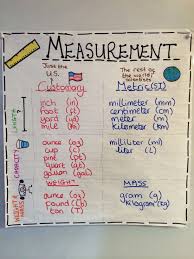 MEASUREMENT
Just the
U.S.
The rest of
the world
scientists
Customary
Metric (SI)
LENGTH
inch (in)
foot (ft)
yard (yd)
mile (mi)
millimeter (mm)
centimeter (cm)
meter (m)
kilometer (km)
CAPACITY
ounce (oz)
cup (c)
pint (pt)
quart (qt)
gallon (gal)
milliliter (ml)
liter (L)
WEIGHT
MASS
WEIGHT
ounce (oz)
pound (lb)
ton (T)
MASS
gram (g)
kilogram (kg)